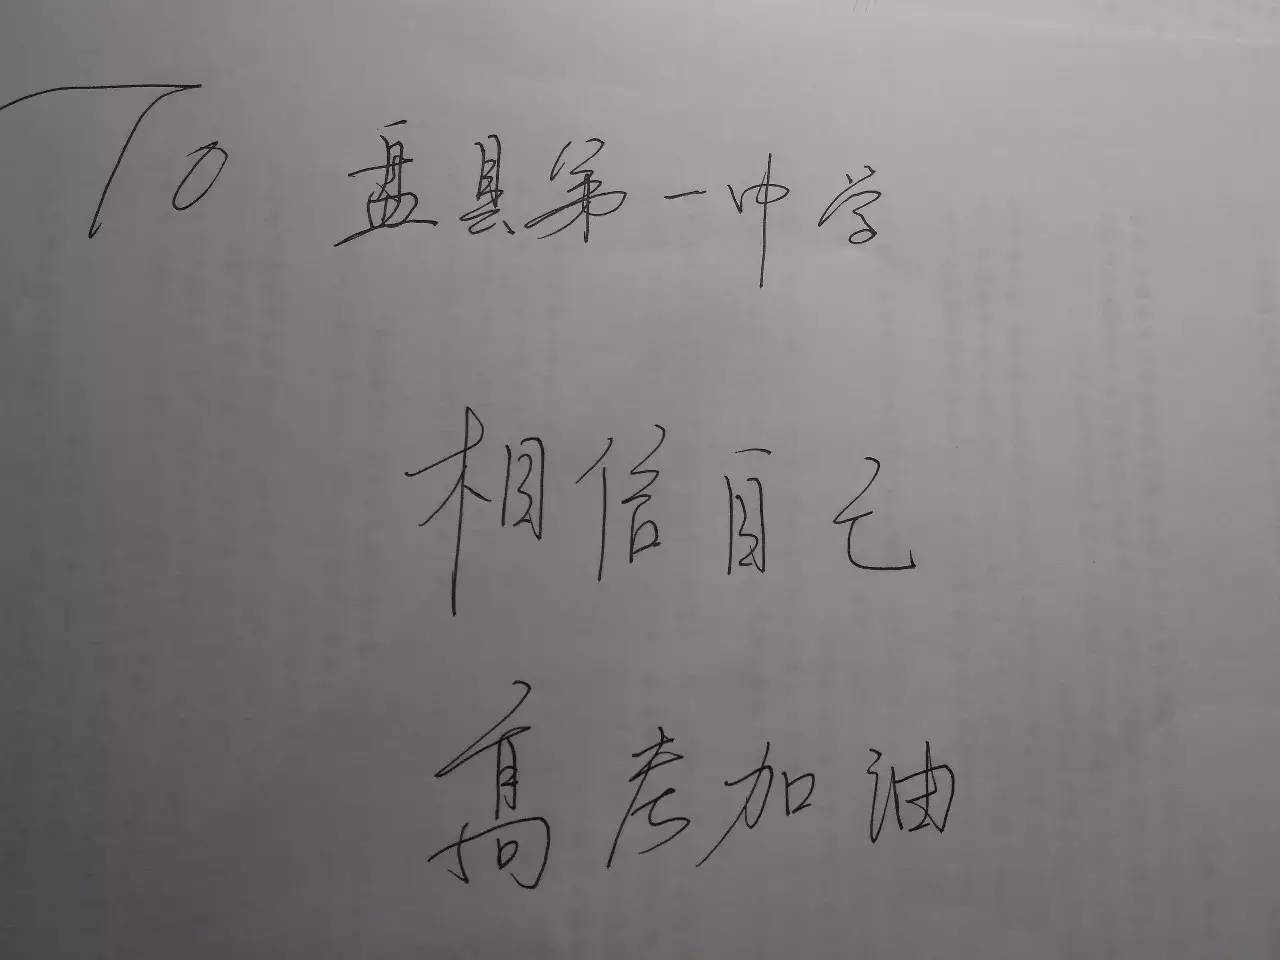 To 盘县第一中学
相信自己
高考加油